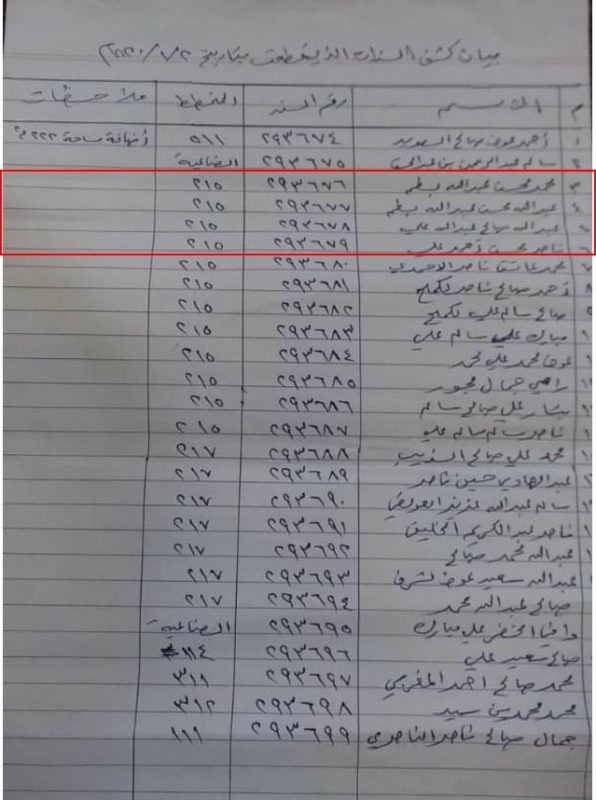 بيان كشف السندات الذي قطعت بتاريخ ٢٠٢٠/٧/٢م
م الاســـم رقم السند المخطط ملاحظات
١ أحمد عوض صالح ٢٩٣٦٧٤ ٥١١ إضافة مساحة ٢٢٢م
٢ سالم عبدالرحمن بن عبدالحق ٢٩٣٦٧٥ الصناعية
٣ محمد محسن عبدالله ٢٩٣٦٧٦ ٢١٥
٤ عبدالله محسن عبدالله ٢٩٣٦٧٧ ٢١٥
٥ عبدالله صالح عبدالله علي ٢٩٣٦٧٨ ٢١٥
٦ ناصر محسن أحمد علي ٢٩٣٦٧٩ ٢١٥
٧ محمد عاتق ناصر الاحمدي ٢٩٣٦٨٠ ٢١٥
٨ أحمد صالح ناصر ٢٩٣٦٨١ ٢١٥
٩ صالح سالم علي ٢٩٣٦٨٢ ٢١٥
مبارك علي سالم علي ٢٩٣٦٨٣ ٢١٥
عوض محمد علي محمد ٢٩٣٦٨٤ ٢١٥
رامي جمال مجور ٢٩٣٦٨٥ ٢١٥
علي صالح سالم ٢٩٣٦٨٦ ٢١٥
ناصر سالم سالم علي ٢٩٣٦٨٧ ٢١٥
محمد علي صالح الذيب ٢٩٣٦٨٨ ٢١٧
عبدالهادي حسين ناصر ٢٩٣٦٨٩ ٢١٧
سالم عبدالله عزيز العولقي ٢٩٣٦٩٠ ٢١٧
ناصر عبدالكريم الخليقي ٢٩٣٦٩١ ٢١٧
عبدالله محمد صالح ٢٩٣٦٩٢ ٢١٧
عبدالله سعيد عوض مشرف ٢٩٣٦٩٣ ٢١٧
صالح عبدالله محمد ٢٩٣٦٩٤ ٢١٧
الخضر علي مبارك ٢٩٣٦٩٥ الصناعية
صالح سعيد علي ٢٩٣٦٩٦ ١١٤
محمد صالح احمد المفرحي ٢٩٣٦٩٧ ٣١١
محمد محمد بن سيد ٢٩٣٦٩٨ ٣١٢
جمال صالح ناصر الناصري ٢٩٣٦٩٩ ١١١